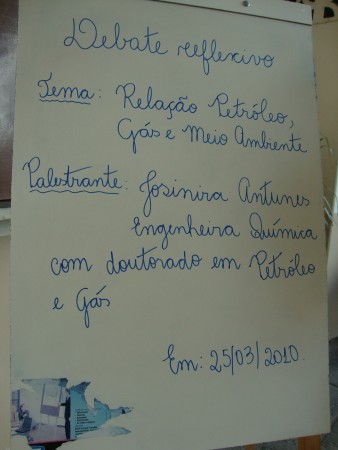 Debate reflexivo
Tema: Relação Petróleo,
Gás e Meio Ambiente
Palestrante: Josinira Antunes
Engenheira Química
com doutorado em Petróleo
e Gás
Em: 25/03/2010.